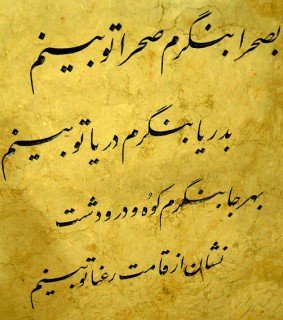 بصحرا بنگرم صحرا تو بینم
بدریا بنگرم دریا تو بینم
بهر جا بنگرم کوه و در و دشت
نشان از قامت رعنا تو بینم